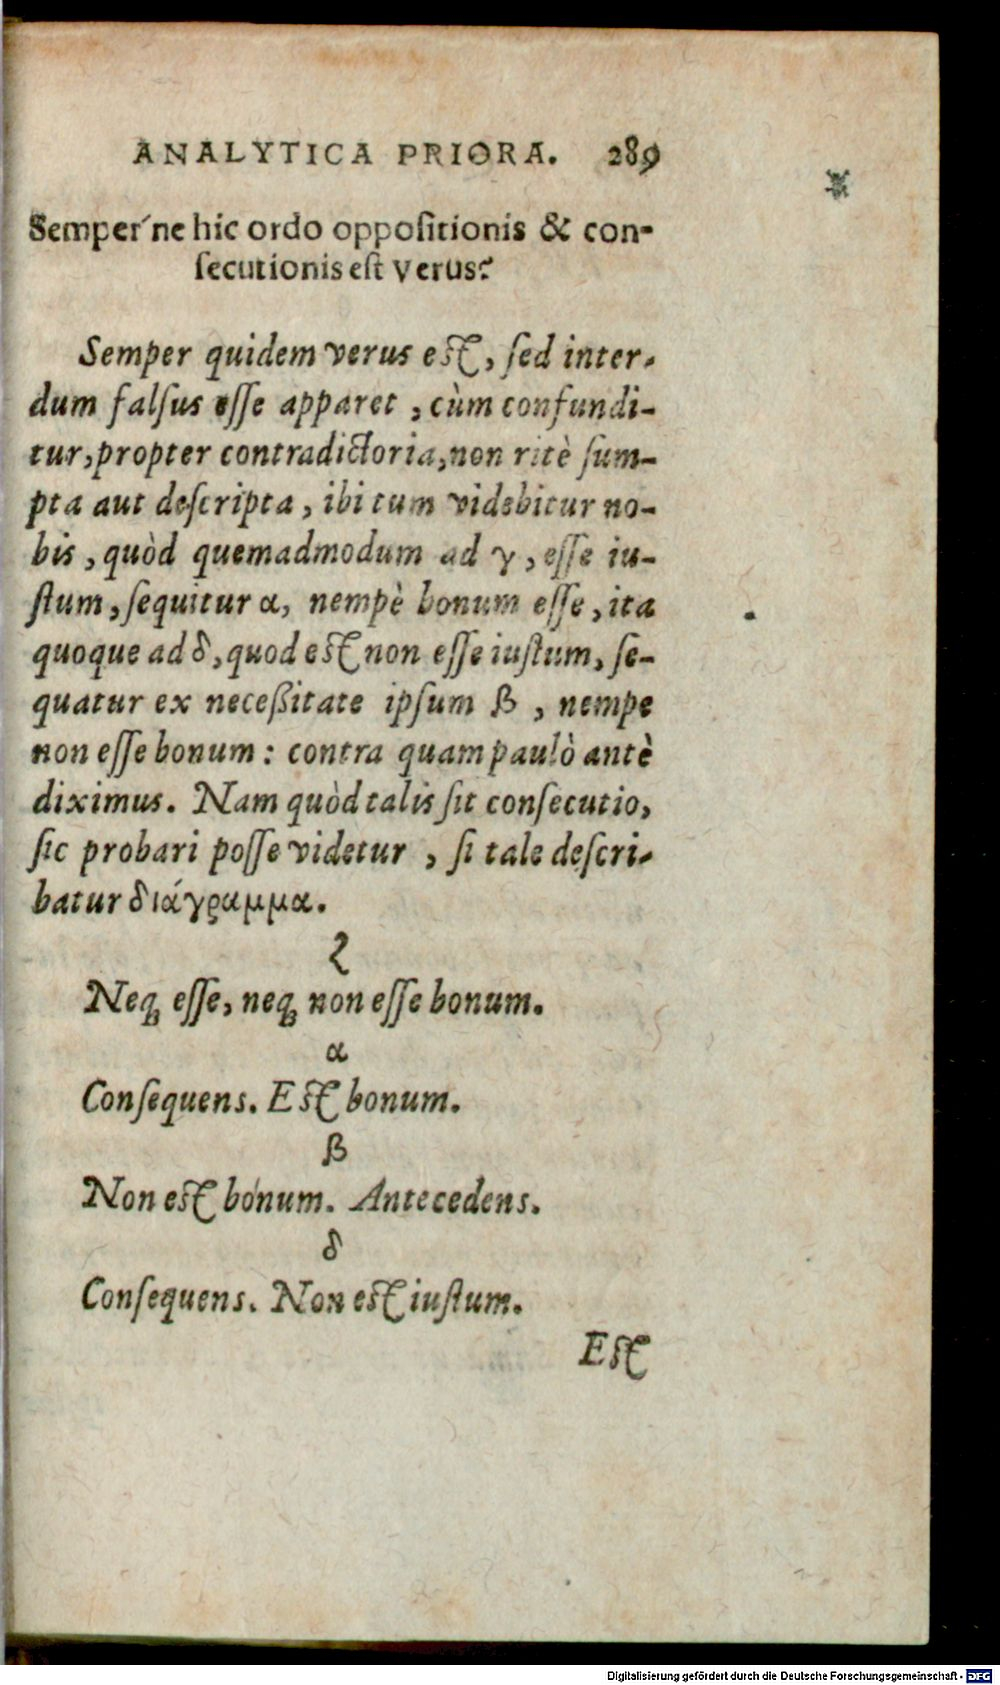 ANALYTICA PRIORA. 289
Semper'ne hic ordo oppositionis & con-
secutionis est verus?
Semper quidem verus est, sed inter-
dum falsus esse apparet, cùm confundi-
tur, propter contradictoria, non ritè sum-
pta aut descripta, ibi tum videbitur no-
bis, quòd quemadmodum ad γ, esse iu-
stum, sequitur α, nempè bonum esse, ita
quoque ad δ, quod est non esse iustum, se-
quatur ex neceßitate ipsum β, nempe
non esse bonum: contra quam paulò antè
diximus. Nam quòd talis sit consecutio,
sic probari posse videtur, si tale descri-
batur διάγραμμα.
ζ
Neq; esse, neq; non esse bonum.
α
Consequens. Est bonum.
β
Non est bonum. Antecedens.
δ
Consequens. Non est iustum.
Est
Digitalisierung gefördert durch die Deutsche Forschungsgemeinschaft - DFG